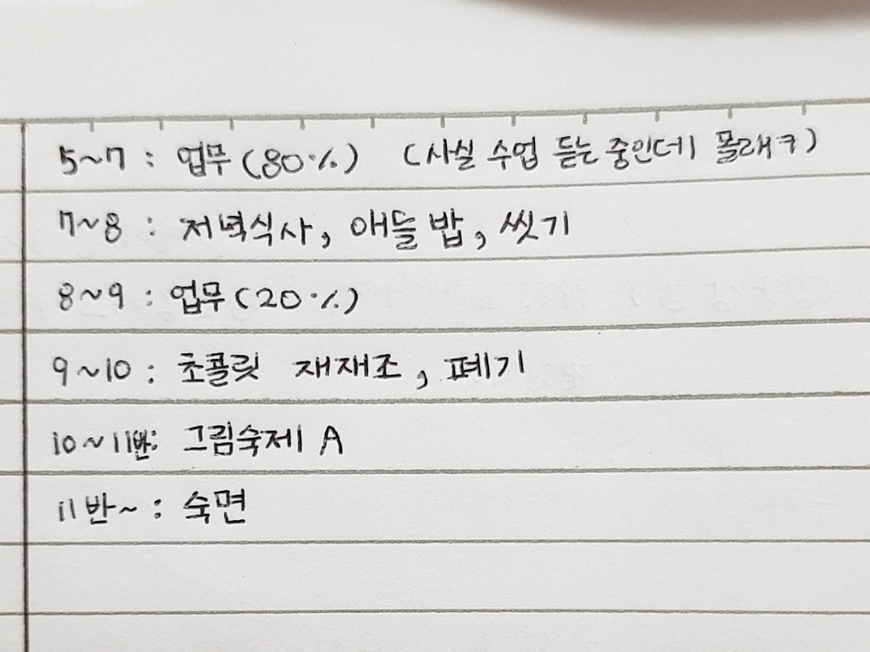 5~7 : 업무(80%) (사실 수업 듣는 중인데 몰래ㅋ)
7~8 : 저녁식사, 애들 밥, 씻기
8~9 : 업무(20%)
9~10 : 초콜릿 재재조, 폐기
10~11반: 그림숙제 A
11반~ : 숙면